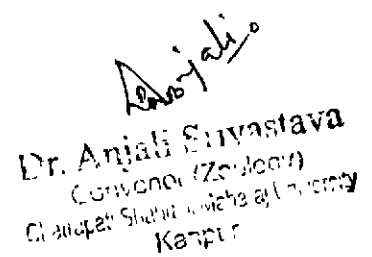 Anjali
Dr. Anjali Srivastava
Convenor (Zoology)
Chhatrapati Shahu Ji Maharaj University
Kanpur